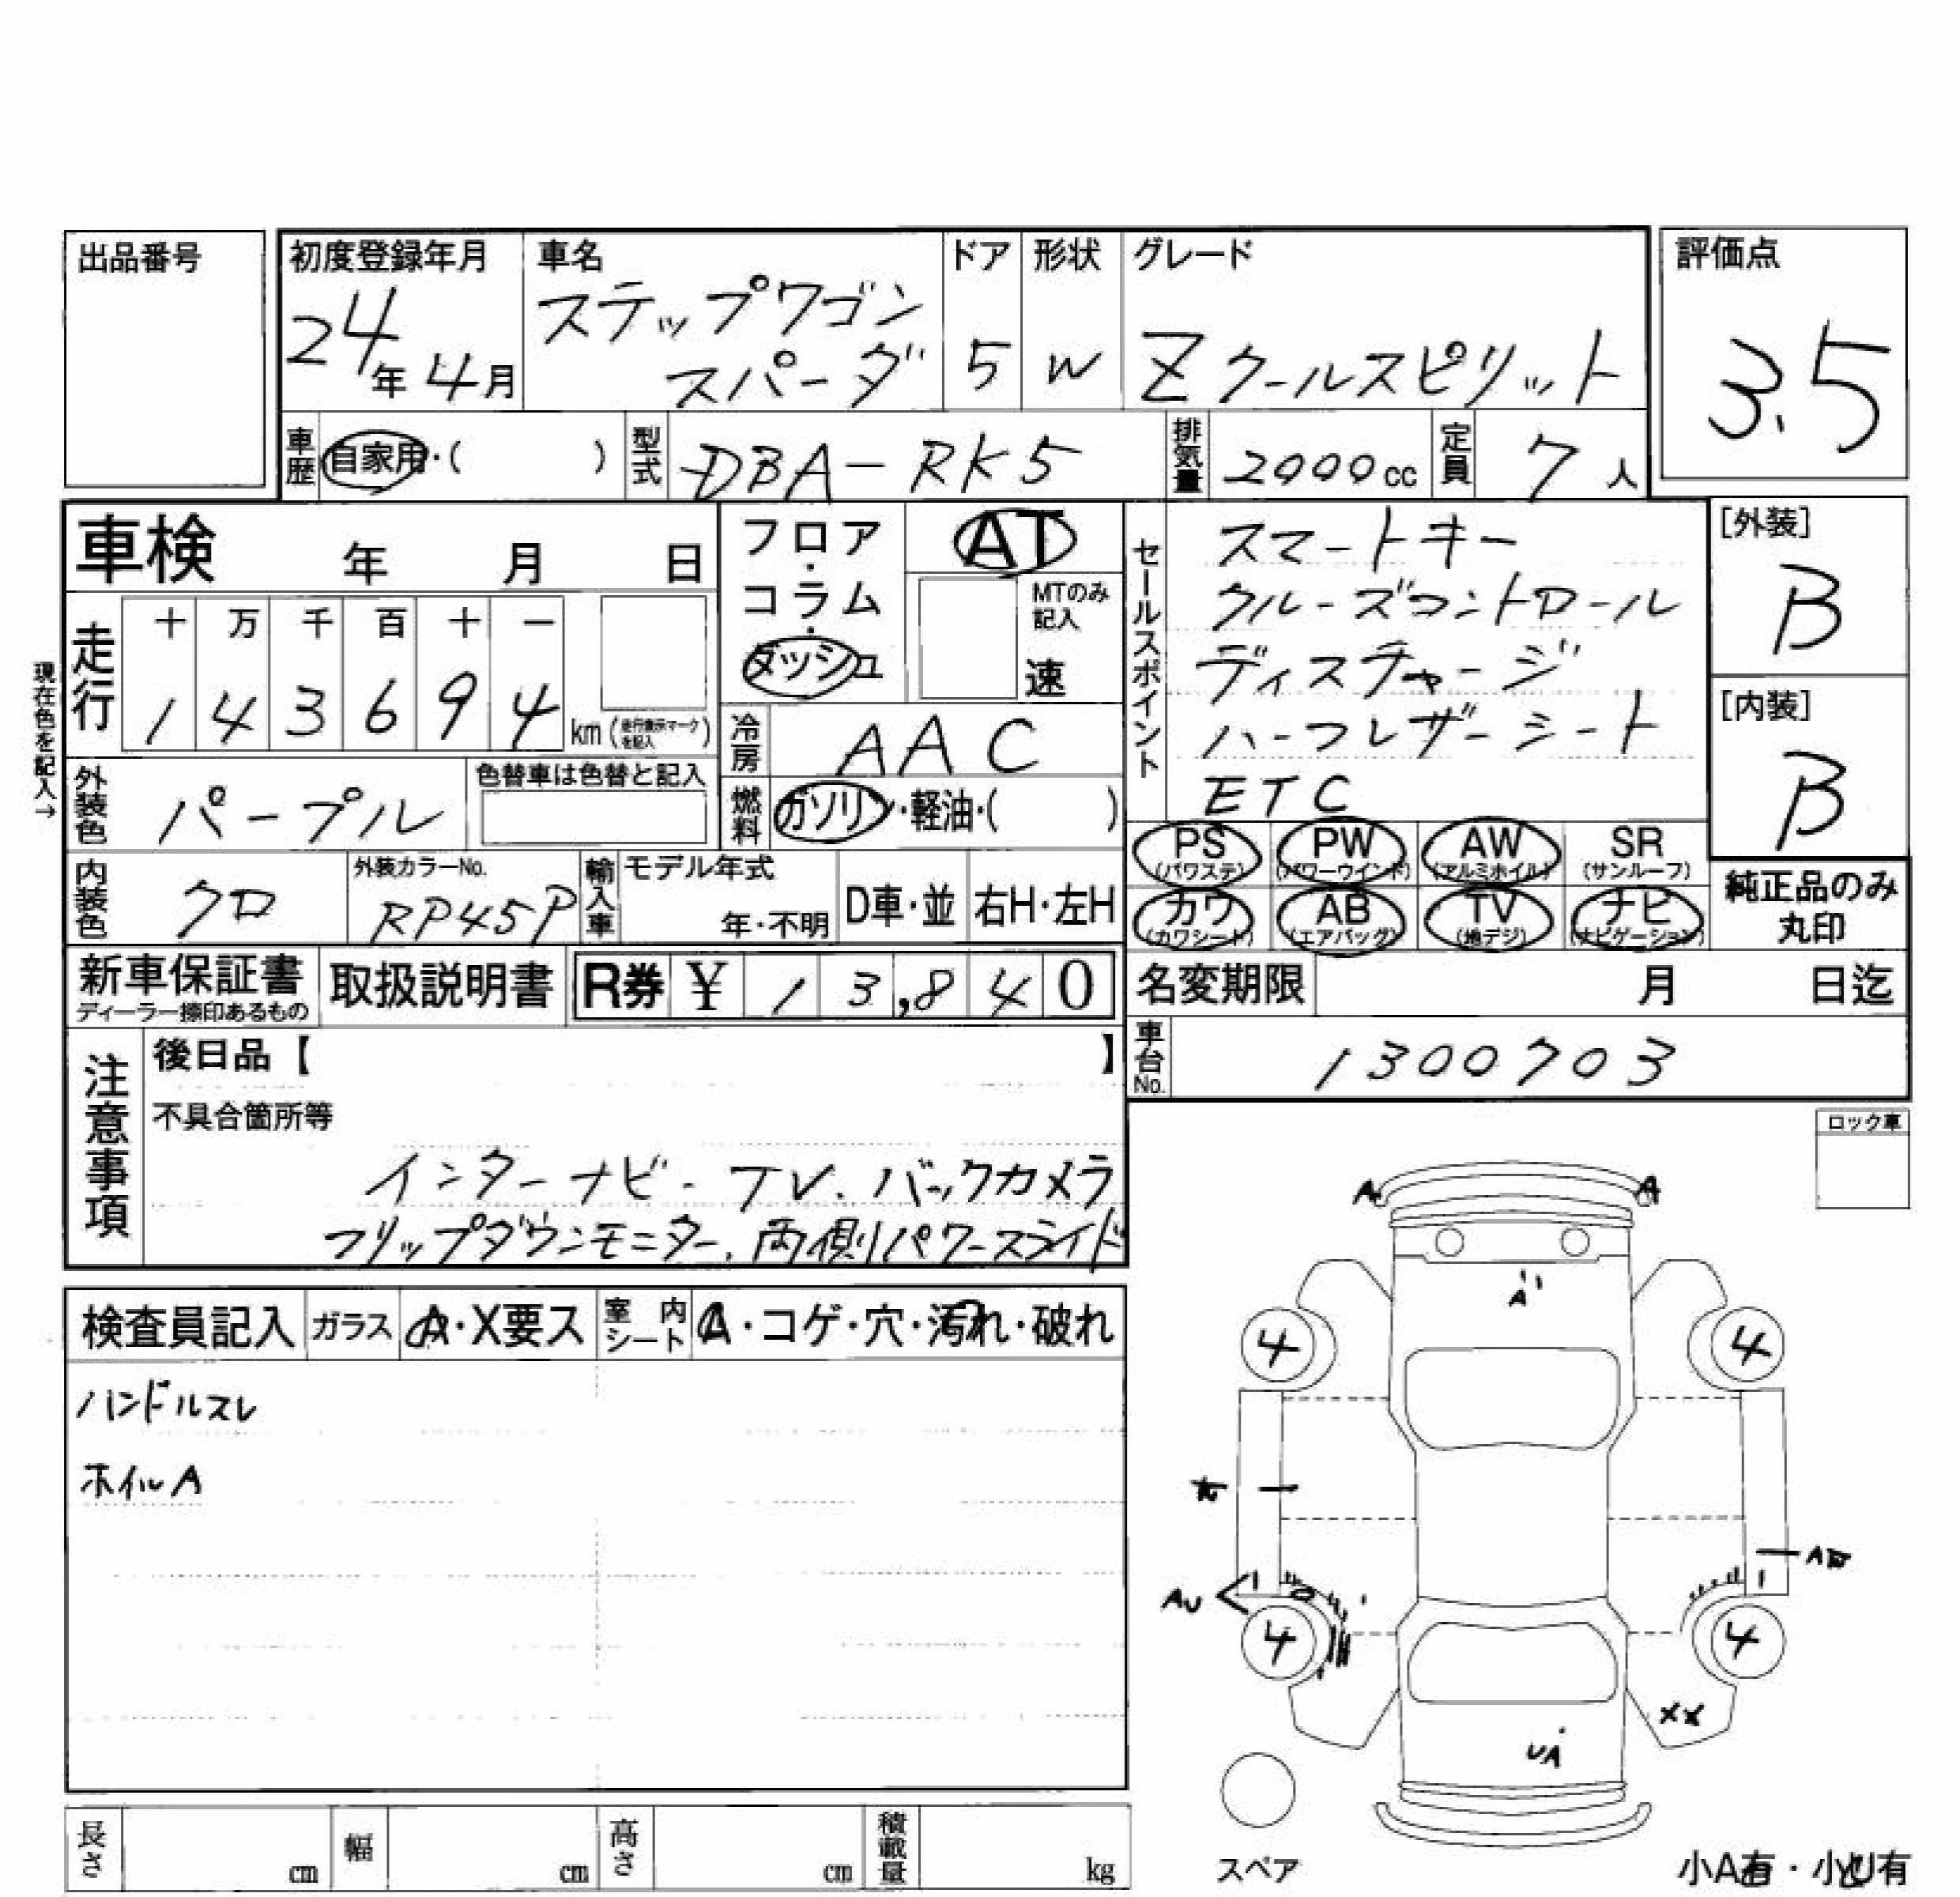 出品番号
初度登録年月 車名 ドア 形状 グレード 評価点
24年4月 ステップワゴン スパーダ 5 W Zクールスピリット 3.5
車歴 自家用・( ) 型式 DBA-RK5 排気量 2000cc 定員 7人
車検 年 月 日
フロア・コラム・ダッシュ AT
MTのみ記入
速
セールスポイント
スマートキー
クルーズコントロール
ディスチャージ
ハーフレザーシート
ETC
[外装]
B
[内装]
B
現在色を記入→
走行 十 万 千 百 十 一
1 4 3 6 9 4 km (走行表示マークを記入)
冷房 AAC
外装色 パープル 色替車は色替と記入
燃料 ガソリン・軽油・( )
PS (パワステ) PW (パワーウインド) AW (アルミホイル) SR (サンルーフ)
カワ (カワシート) AB (エアバッグ) TV (地デジ) ナビ (ナビゲーション)
純正品のみ丸印
内装色 クロ 外装カラーNo. RP45P 輸入車 モデル年式 年・不明 D車・並 右H・左H
新車保証書 ディーラー捺印あるもの 取扱説明書 R券 ¥ 13,840
名変期限 月 日迄
車台No. 1300703
注意事項
後日品【 】
不具合箇所等
インターナビ- TV. バックカメラ
フリップダウンモニター. 両側パワースライド
ロック車
検査員記入 ガラス A・X要ス 室内シート A・コゲ・穴・汚れ・破れ
ハンドルスレ
ホイルA
A A
A
4 4
AU
4 4
XX
UA
スペア
小A有・小U有
長さ cm 幅 cm 高さ cm 積載量 kg